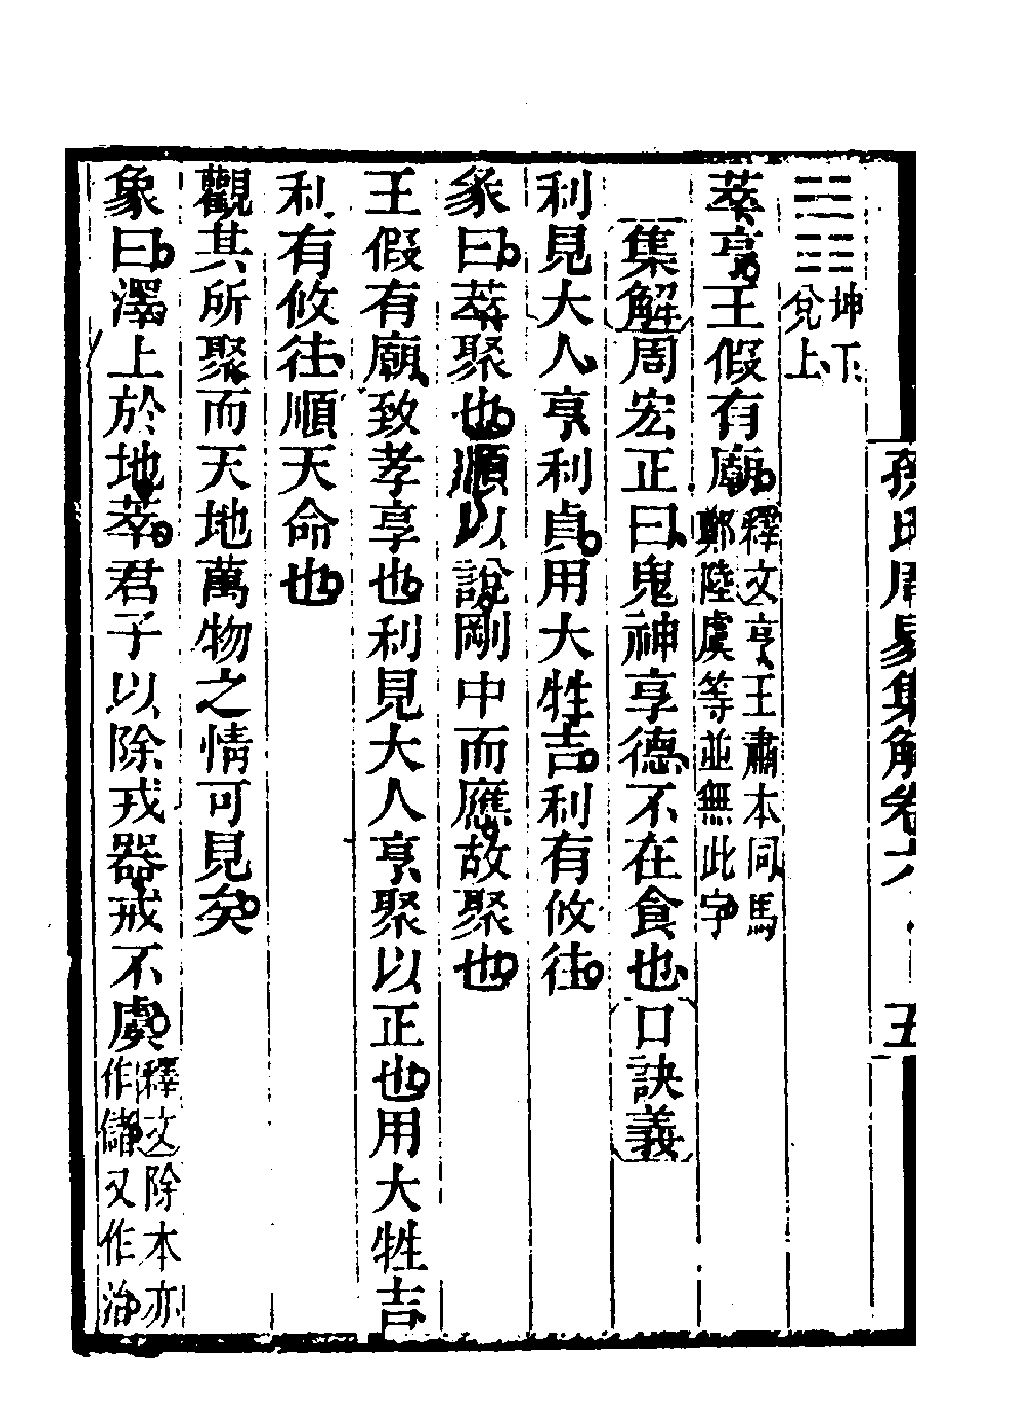 孫氏周易集解卷六 五
坤下
兌上
萃亨王假有廟釋文亨王肅本同馬鄭陸虞等並無此字
集解周宏正曰鬼神享德不在食也口訣義
利見大人亨利貞用大牲吉利有攸往
彖曰萃聚也順以說剛中而應故聚也
王假有廟致孝享也利見大人亨聚以正也用大牲吉
利有攸往順天命也
觀其所聚而天地萬物之情可見矣
象曰澤上於地萃君子以除戎器戒不虞釋文除本亦作儲又作治